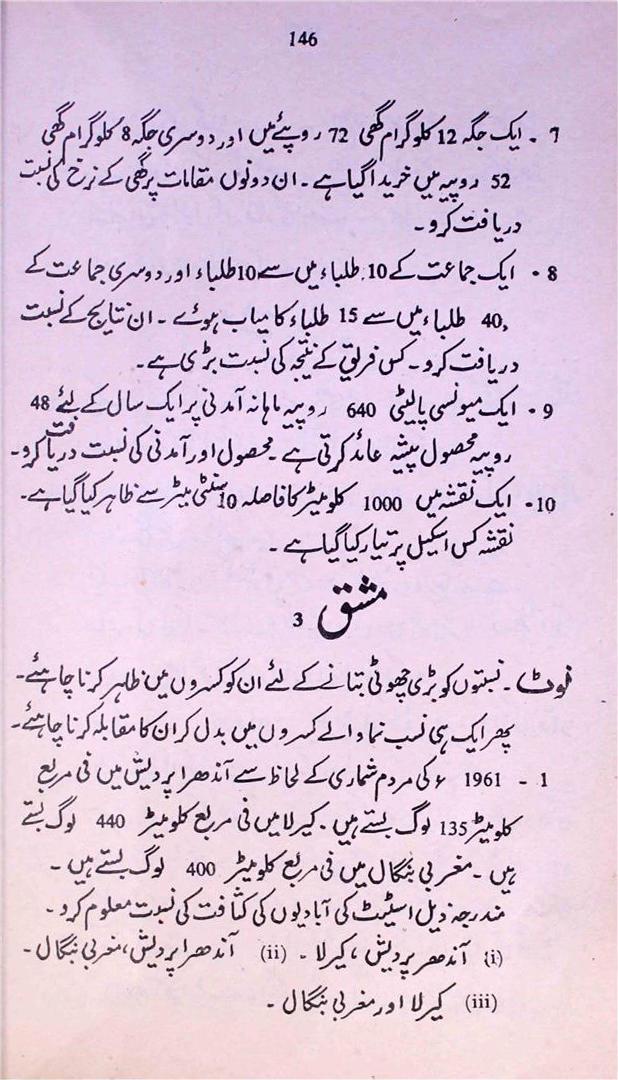 146
7 ۔ ایک جگہ 12 کلوگرام گھی 72 روپئے میں اور دوسری جگہ 8 کلوگرام گھی
52 روپیہ میں خریدا گیا ہے ۔ ان دونوں مقامات پر گھی کے نرخ کی نسبت
دریافت کرو ۔
8 ۔ ایک جماعت کے 10 طلباء میں سے 10 طلباء اور دوسری جماعت کے
40 طلباء میں سے 15 طلباء کامیاب ہوئے ۔ ان نتایج کے نسبت
دریافت کرو ۔ کس فریق کے نتیجہ کی نسبت بڑی ہے ۔
9 ۔ ایک میونسی پالیٹی 640 روپیہ ماہانہ آمدنی پر ایک سال کے لئے 48
روپیہ محصول پیشہ عائد کرتی ہے ۔ محصول اور آمدنی کی نسبت دریافت کرو ۔
10 ۔ ایک نقشہ میں 1000 کلومیٹر کا فاصلہ 10 سنٹی میٹر سے ظاہر کیا گیا ہے ۔
نقشہ کس اسکیل پر تیار کیا گیا ہے ۔
مشق 3
نوٹ ۔ نسبتوں کو بڑی چھوٹی بتانے کے لئے ان کو کسروں میں ظاہر کرنا چاہئے ۔
پھر ایک ہی نسب نما والے کسروں میں بدل کر ان کا مقابلہ کرنا چاہئے ۔
1 ۔ 1961 ء کی مردم شماری کے لحاظ سے آندھرا پردیش میں فی مربع
کلومیٹر 135 لوگ بستے ہیں ۔ کیرلا میں فی مربع کلومیٹر 440 لوگ بستے
ہیں ۔ مغربی بنگال میں فی مربع کلومیٹر 400 لوگ بستے ہیں ۔
مندرجہ ذیل اسٹیٹ کی آبادیوں کی کثافت کی نسبت معلوم کرو ۔
(i) آندھر پردیش ، کیرلا ۔ (ii) آندھرا پردیش ، مغربی بنگال ۔
(iii) کیرلا اور مغربی بنگال ۔